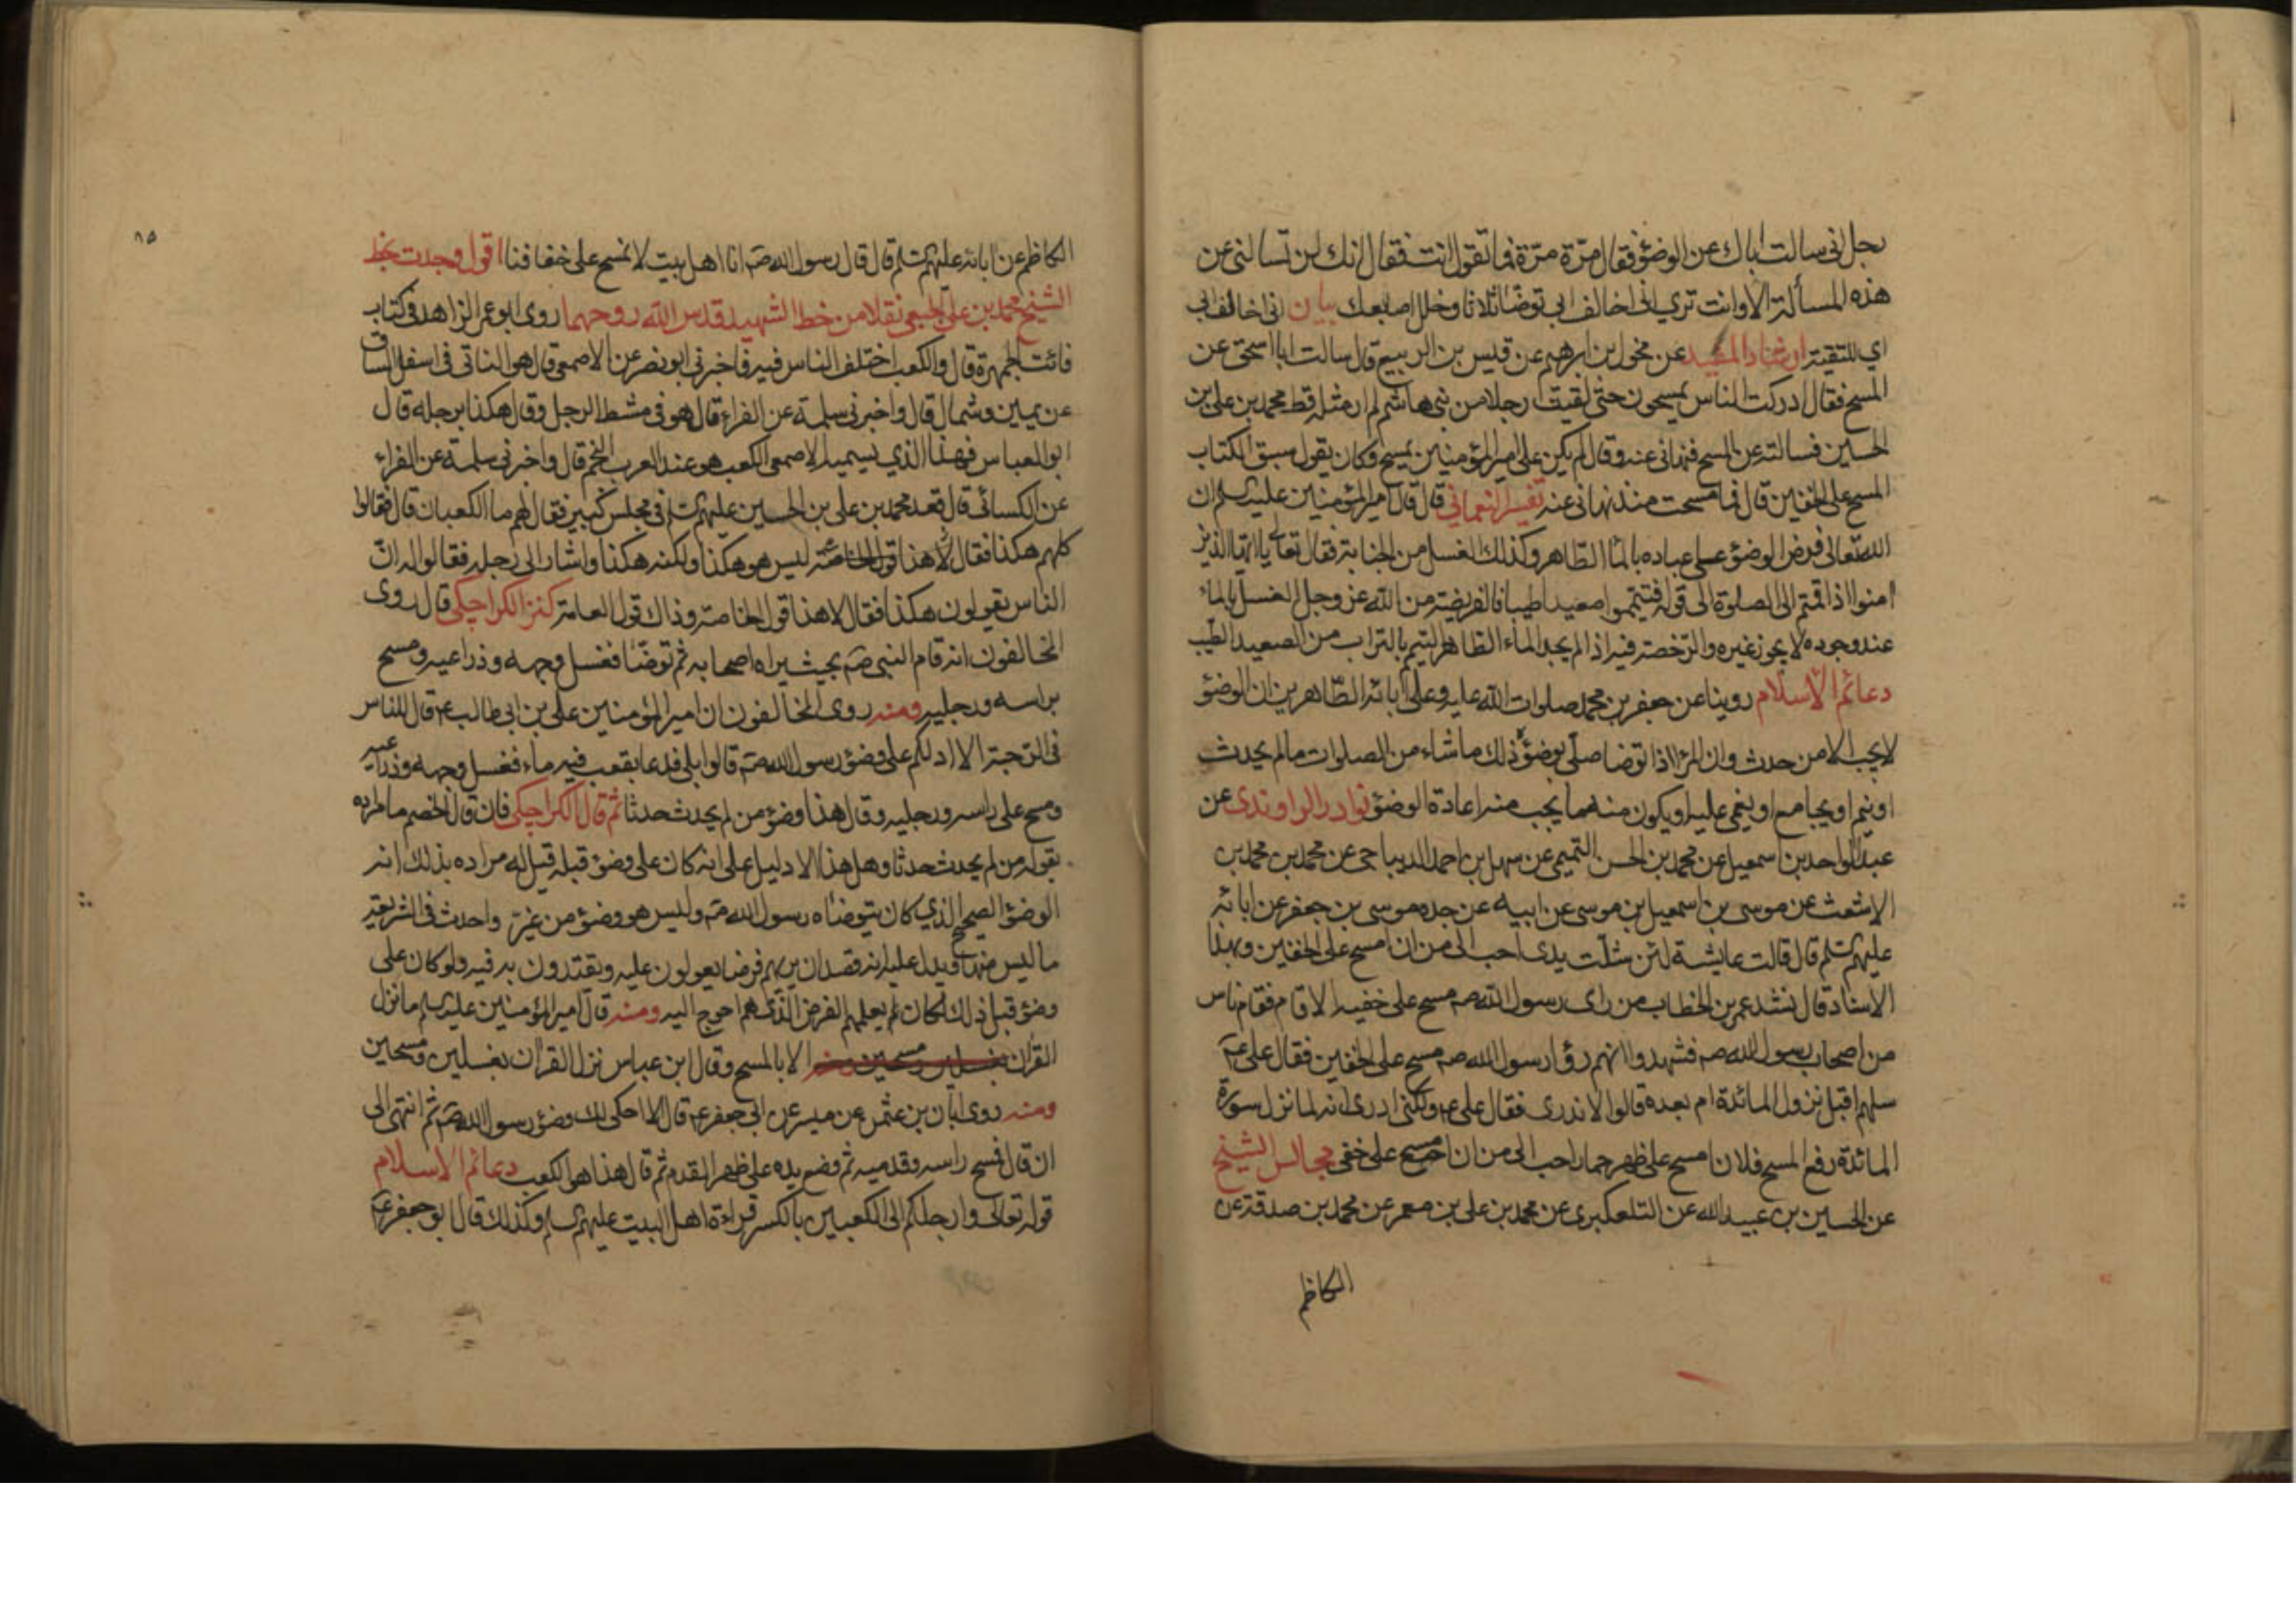 رجل اني سالت اباك عن الوضؤ فقال مرّة مرّة فما تقول انت فقال انك لن تسالني عن
هذه المسألة الا وانت ترى اني اخالف ابي توضأ ثلاثا وخلل اصابعك بيان اني اخالف ابي
اي للتقية ارشاد المفيد عن مخول بن ابرهيم عن قيس بن الربيع قال سالت ابا اسحق عن
المسح فقال ادركت الناس يمسحون حتى لقيت رجلا من بني هاشم لم ار مثله قط محمد بن علي بن
الحسين فسالته عن المسح فنهاني عنه وقال لم يكن علي امير المؤمنين يمسح وكان يقول سبق الكتاب
المسح على الخفين قال فما مسحت منذ نهاني عنه تفسير النعماني قال قال امير المؤمنين عليه السلم ان
الله تعالى فرض الوضؤ على عباده بالماء الطاهر وكذلك الغسل من الجنابة فقال تعالى يا ايها الذين
امنوا اذا قمتم الى الصلوة الى قوله فتيمموا صعيدا طيبا فالفريضة من الله عز وجل الغسل بالماء
عند وجوده لا يجوز غيره والرخصة فيه اذا لم يجد الماء الطاهر التيمم بالتراب من الصعيد الطيب
دعائم الاسلام روينا عن جعفر بن محمد صلوات الله عليه وعلى آبائه الطاهرين ان الوضؤ
لا يجب الا من حدث وان المرء اذا توضا صلى بوضؤه ذلك ما شاء من الصلوات ما لم يحدث
او ينم او يجامع او يغمى عليه او يكون منه ما يجب منه اعادة الوضؤ نوادر الراوندي عن
عبد الواحد بن اسمعيل عن محمد بن الحسن التميمي عن سهل بن احمد الديباجي عن محمد بن محمد بن
الاشعث عن موسى بن اسمعيل بن موسى عن ابيه عن جده موسى بن جعفر عن ابائه
عليهم السلم قال قالت عايشة لئن شلّت يدى احب الى من ان امسح على الخفين وبهذا
الاسناد قال نشد عمر بن الخطاب من راى رسول الله صه مسح على خفيه الا قام فقام ناس
من اصحاب رسول الله صه فشهدوا انهم رؤا رسول الله صه مسح على الخفين فقال على عم
سلهم اقبل نزول المائدة ام بعده قالوا لا ندرى فقال على عم ولكني ادرى انه لما نزل سورة
المائدة رفع المسح فلان امسح على ظهر حمار احب الى من ان امسح على خفى مجالس الشيخ
عن الحسين بن عبيد الله عن التلعكبرى عن محمد بن على بن معمر عن محمد بن صدقة عن
الكاظم
٨٥
الكاظم عن ابائه عليهم السلم قال قال رسول الله صه انا اهل بيت لا نمسح على خفافنا اقول وجدت بخط
الشيخ محمد بن علي الجبعي نقلا من خط الشهيد قدس الله روحهما روى ابو عمر الزاهد في كتاب
فائت الجمهرة قال والكعب اختلف الناس فيه فاخبرني ابو نصر عن الاصمعي قال هو الناتي في اسفل الساق
عن يمين وشمال قال واخبرني سلمة عن الفراء قال هو في مشط الرجل وقال هكذا برجله قال
ابو العباس فهذا الذي يسميه الاصمعي الكعب هو عند العرب المنجم قال واخبرني سلمة عن الفراء
عن الكسائي قال قعد محمد بن علي بن الحسين عليهم السلم في مجلس كبير فقال لهم ما الكعبان قال فقالوا
كلهم هكذا فقال لا هذا قول الخاصة ليس هو هكذا ولكنه هكذا واشار الى رجله فقالوا له ان
الناس يقولون هكذا فقال لا هذا قول الخاصة وذاك قول العامة كنز الكراجكي قال روى
المخالفون انه قام النبي صه بحيث يراه اصحابه ثم توضأ فغسل وجهه وذراعيه ومسح
براسه ورجليه ومنه روى المخالفون ان امير المؤمنين علي بن ابي طالب عم قال للناس
في الرحبة الا ادلكم على وضؤ رسول الله صه قالوا بلى فدعا بقعب فيه ماء فغسل وجهه وذراعيه
ومسح على راسه ورجليه وقال هذا وضؤ من لم يحدث حدثا ثم قال الكراجكي فان قال الخصم ما مراده
بقوله من لم يحدث حدثا وهل هذا الا دليل على انه كان على وضؤ قبله قيل له مراده بذلك انه
الوضؤ الصحيح الذي كان يتوضاه رسول الله صه وليس هو وضؤ من غيّر واحدث في الشريعة
ما ليس منها ويدل عليه انه قصد ان يريهم فرضا يعولون عليه ويقتدون به فيه ولو كان على
وضؤ قبل ذلك لكان لم يعلمهم الفرض الذى هم احوج اليه ومنه قال امير المؤمنين عليه السلم ما نزل
القران الا بالمسح وقال ابن عباس نزل القران بغسلين ومسحين
ومنه روى ابان بن عثمن عن ميسر عن ابي جعفر عم قال الا احكى لك وضؤ رسول الله صه ثم انتهى الى
ان قال فمسح راسه وقدميه ثم وضع يده على ظهر القدم ثم قال هذا هو الكعب دعائم الاسلام
قوله تعالى وارجلكم الى الكعبين بالكسر قراءة اهل البيت عليهم السلم وكذلك قال ابو جعفر عم